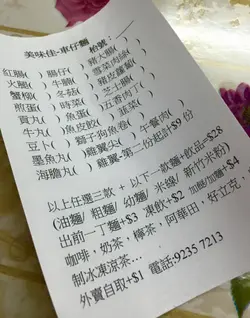 美味佳-車仔麵 枱號:
紅腸( ) 腸仔( ) 豬大腸( )
火腿( ) 牛腩( ) 雪菜肉絲( )
蟹柳( ) 冬菇( ) 豬皮蘿蔔( )
煎蛋( ) 時菜( ) 芝士腸( )
貢丸( ) 魚蛋( ) 五香肉丁( )
牛丸( ) 魚皮餃( ) 韭菜( )
豆卜( ) 獅子狗魚卷( )
墨魚丸( ) 雞翼尖( ) 午餐肉( )
海膽丸( ) 雞翼-第二份起計+$9 份
以上任選三款 + 以下一款麵+飲品=$28
(油麵/ 粗麵/ 幼麵/ 米線/ 新竹米粉)
出前一丁麵+$3 凍飲+$2 加餸/加麵+$4
咖啡, 奶茶, 檸茶, 阿華田, 好立克,
制冰凍涼茶...
外賣自取+$1 電話:9235 7213